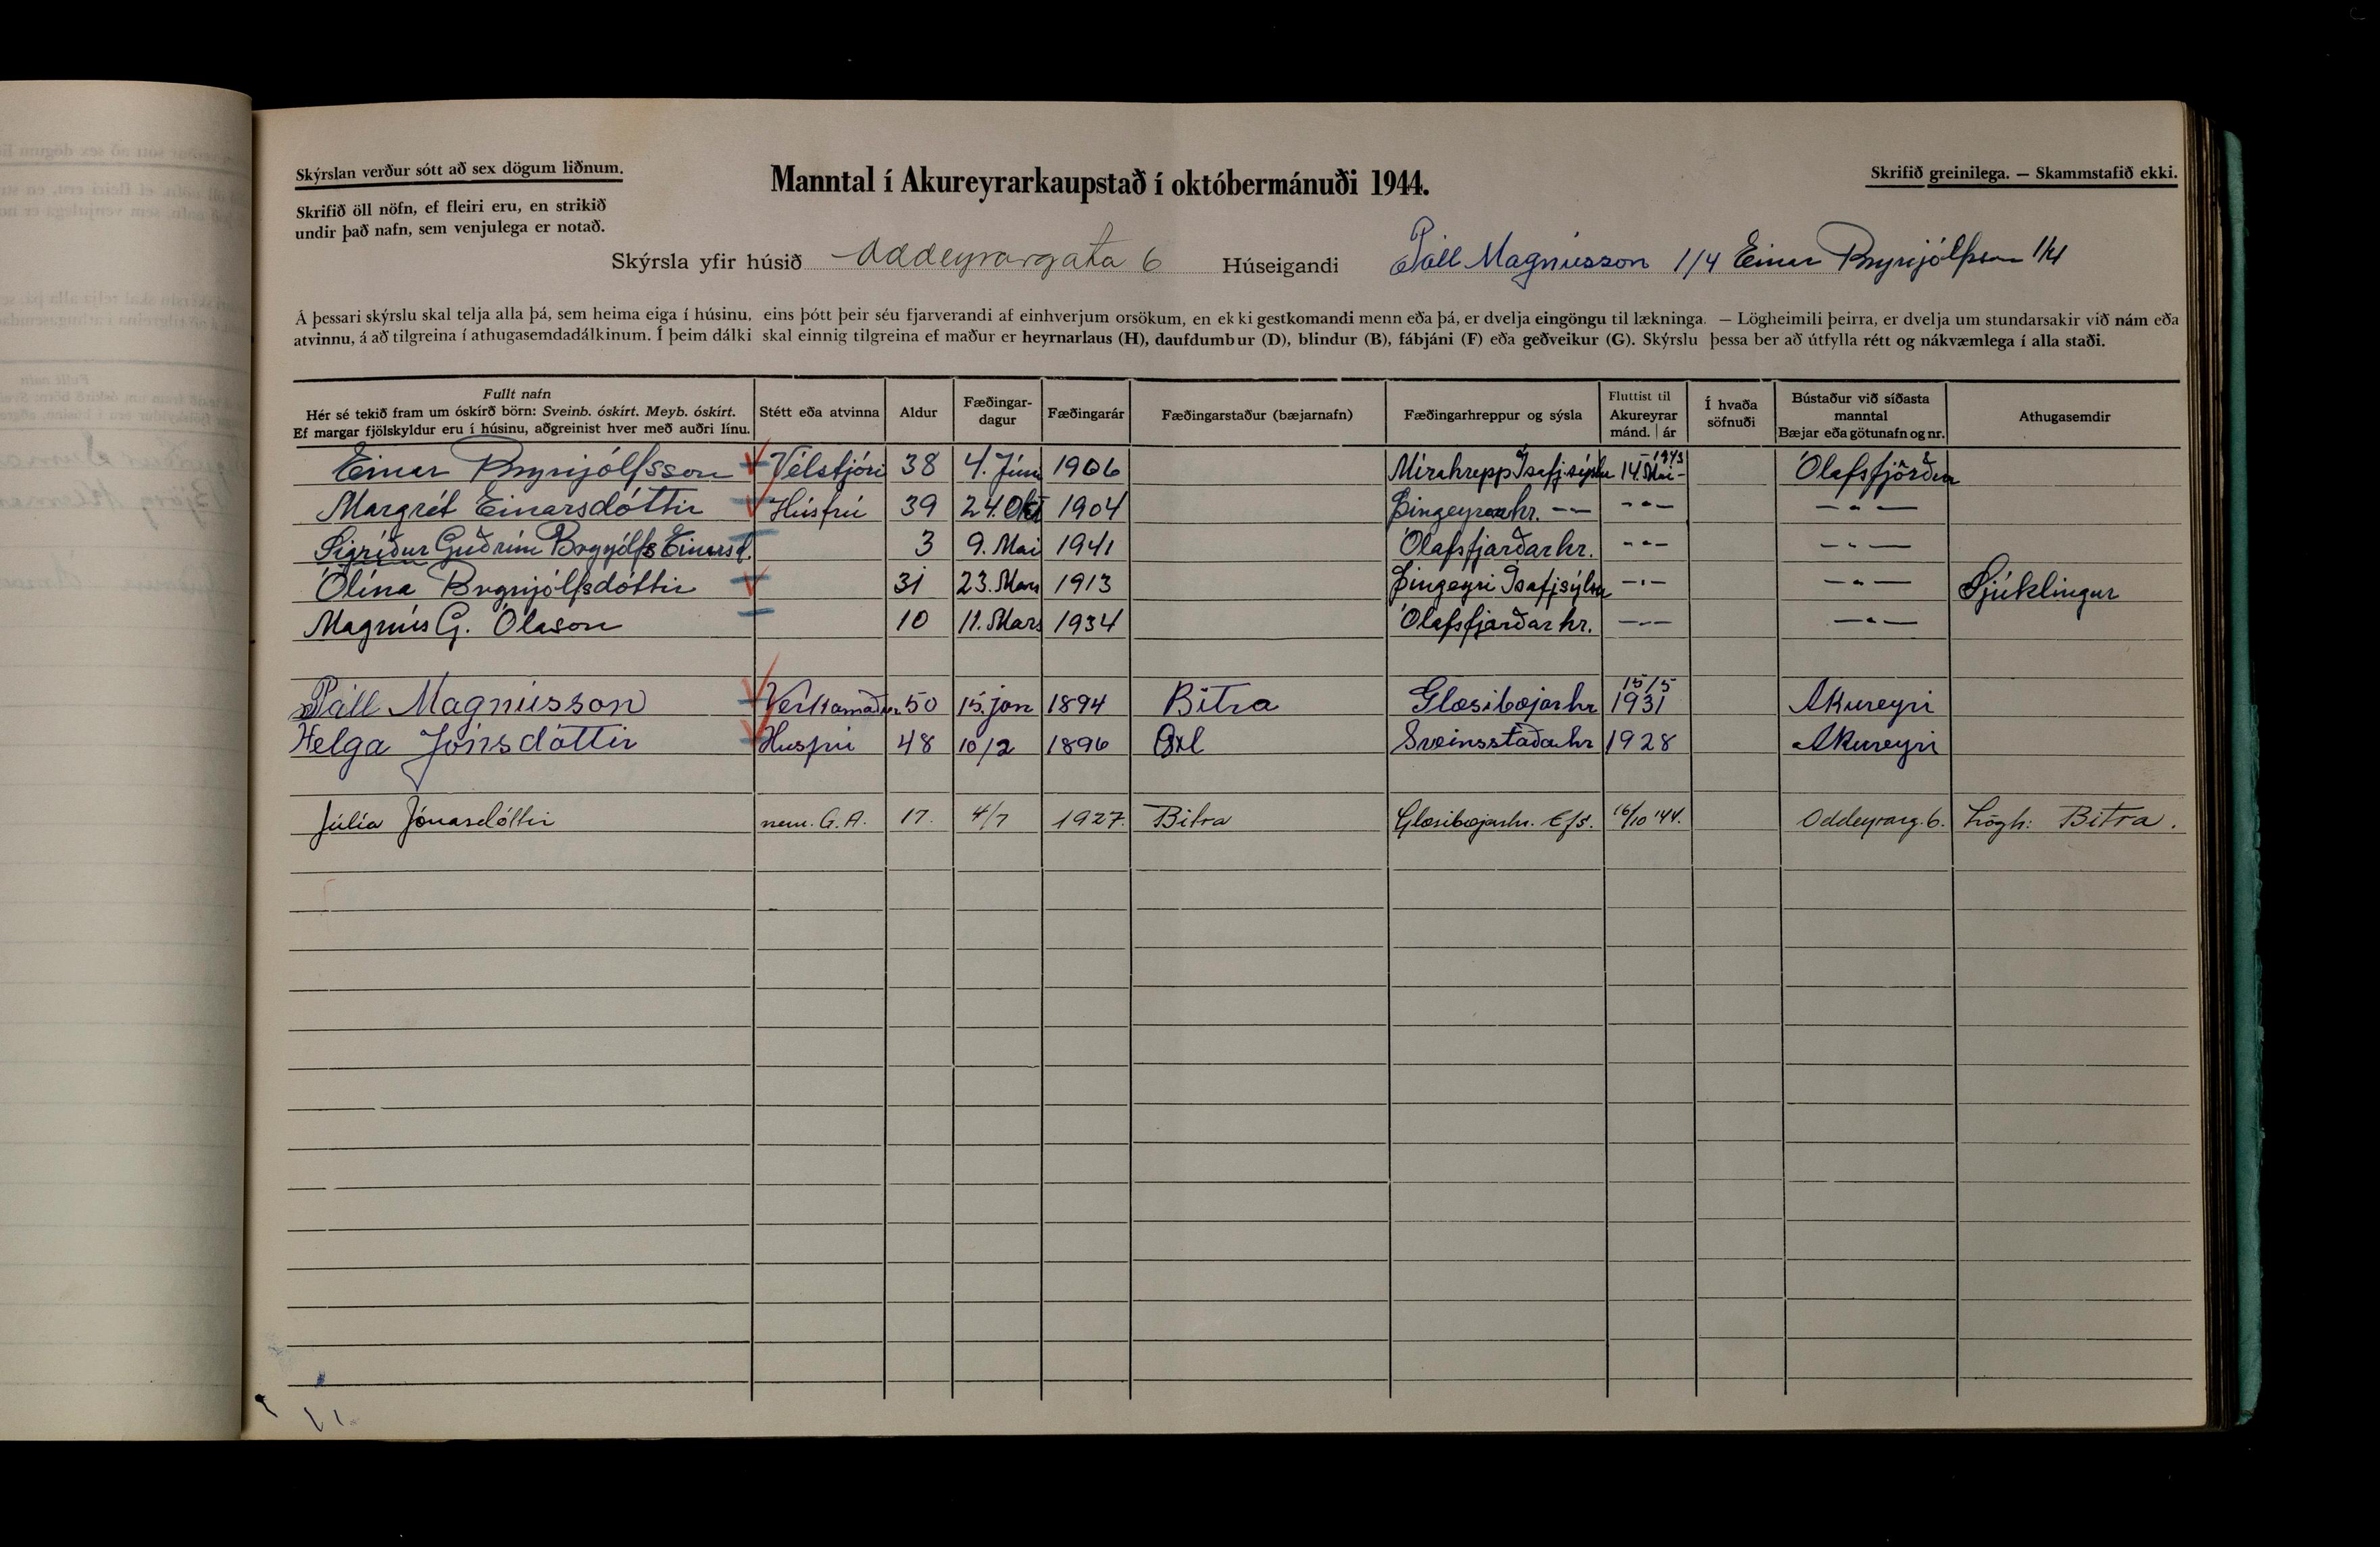 Skýrslan verður sótt að sex dögum liðnum.
Skrifið öll nöfn, ef fleiri eru, en strikið
undir það nafn, sem venjulega er notað.
Manntal í Akureyrarkaupstað í októbermánuði 1944.
Skrifið greinilega. — Skammstafið ekki.
Skýrsla yfir húsið Oddeyrargata 6 Húseigandi Páll Magnússon 1/4 Einar Brynjólfsson 1/4
Á þessari skýrslu skal telja alla þá, sem heima eiga í húsinu, eins þótt þeir séu fjarverandi af einhverjum orsökum, en ekki gestkomandi menn eða þá, er dvelja eingöngu til lækninga. — Lögheimili þeirra, er dvelja um stundarsakir við nám eða
atvinnu, á að tilgreina í athugasemdadálkinum. Í þeim dálki skal einnig tilgreina ef maður er heyrnarlaus (H), daufdumbur (D), blindur (B), fábjáni (F) eða geðveikur (G). Skýrslu þessa ber að útfylla rétt og nákvæmlega í alla staði.
Fullt nafn
Hér sé tekið fram um óskírð börn: Sveinb. óskírt. Meyb. óskírt.
Ef margar fjölskyldur eru í húsinu, aðgreinist hver með auðri línu.
Stétt eða atvinna
Aldur
Fæðingar-
dagur
Fæðingarár
Fæðingarstaður (bæjarnafn)
Fæðingarhreppur og sýsla
Fluttist til
Akureyrar
mánd. | ár
Í hvaða
söfnuði
Bústaður við síðasta
manntal
Bæjar eða götunafn og nr.
Athugasemdir
Einar Brynjólfsson Vélstjóri 38 4. Júní 1906 Mírahrepp Ísafj.sýslu 14. Mai - 1943 Ólafsfjörður
Margrét Einarsdóttir Húsfrú 39 24. Okt 1904 Þingeyrarhr. — — - " - — " —
Sigríður Guðrún Brynjólfs Einarsd. 3 9. Mai 1941 Ólafsfjarðarhr. - " - — " —
Ólína Brynjólfsdóttir 31 23. Mars 1913 Þingeyri Ísafjsýlsu — " — — " — Sjúklingur
Magnús G. Ólason 10 11. Mars 1934 Ólafsfjarðarhr. — " — — " —
Páll Magnússon Verkamaður 50 15. jan 1894 Bitra Glæsibæjarhr 15/5 1931 Akureyri
Helga Jónsdóttir Husfrú 48 10/2 1896 Öxl Sveinsstaðahr 1928 Akureyri
Júlía Jónasdóttir nem. G.A. 17. 4/7 1927. Bitra Glæsibæjarhr. Efs. 16/10 '44. Oddeyrarg. 6. Lögh: Bitra.